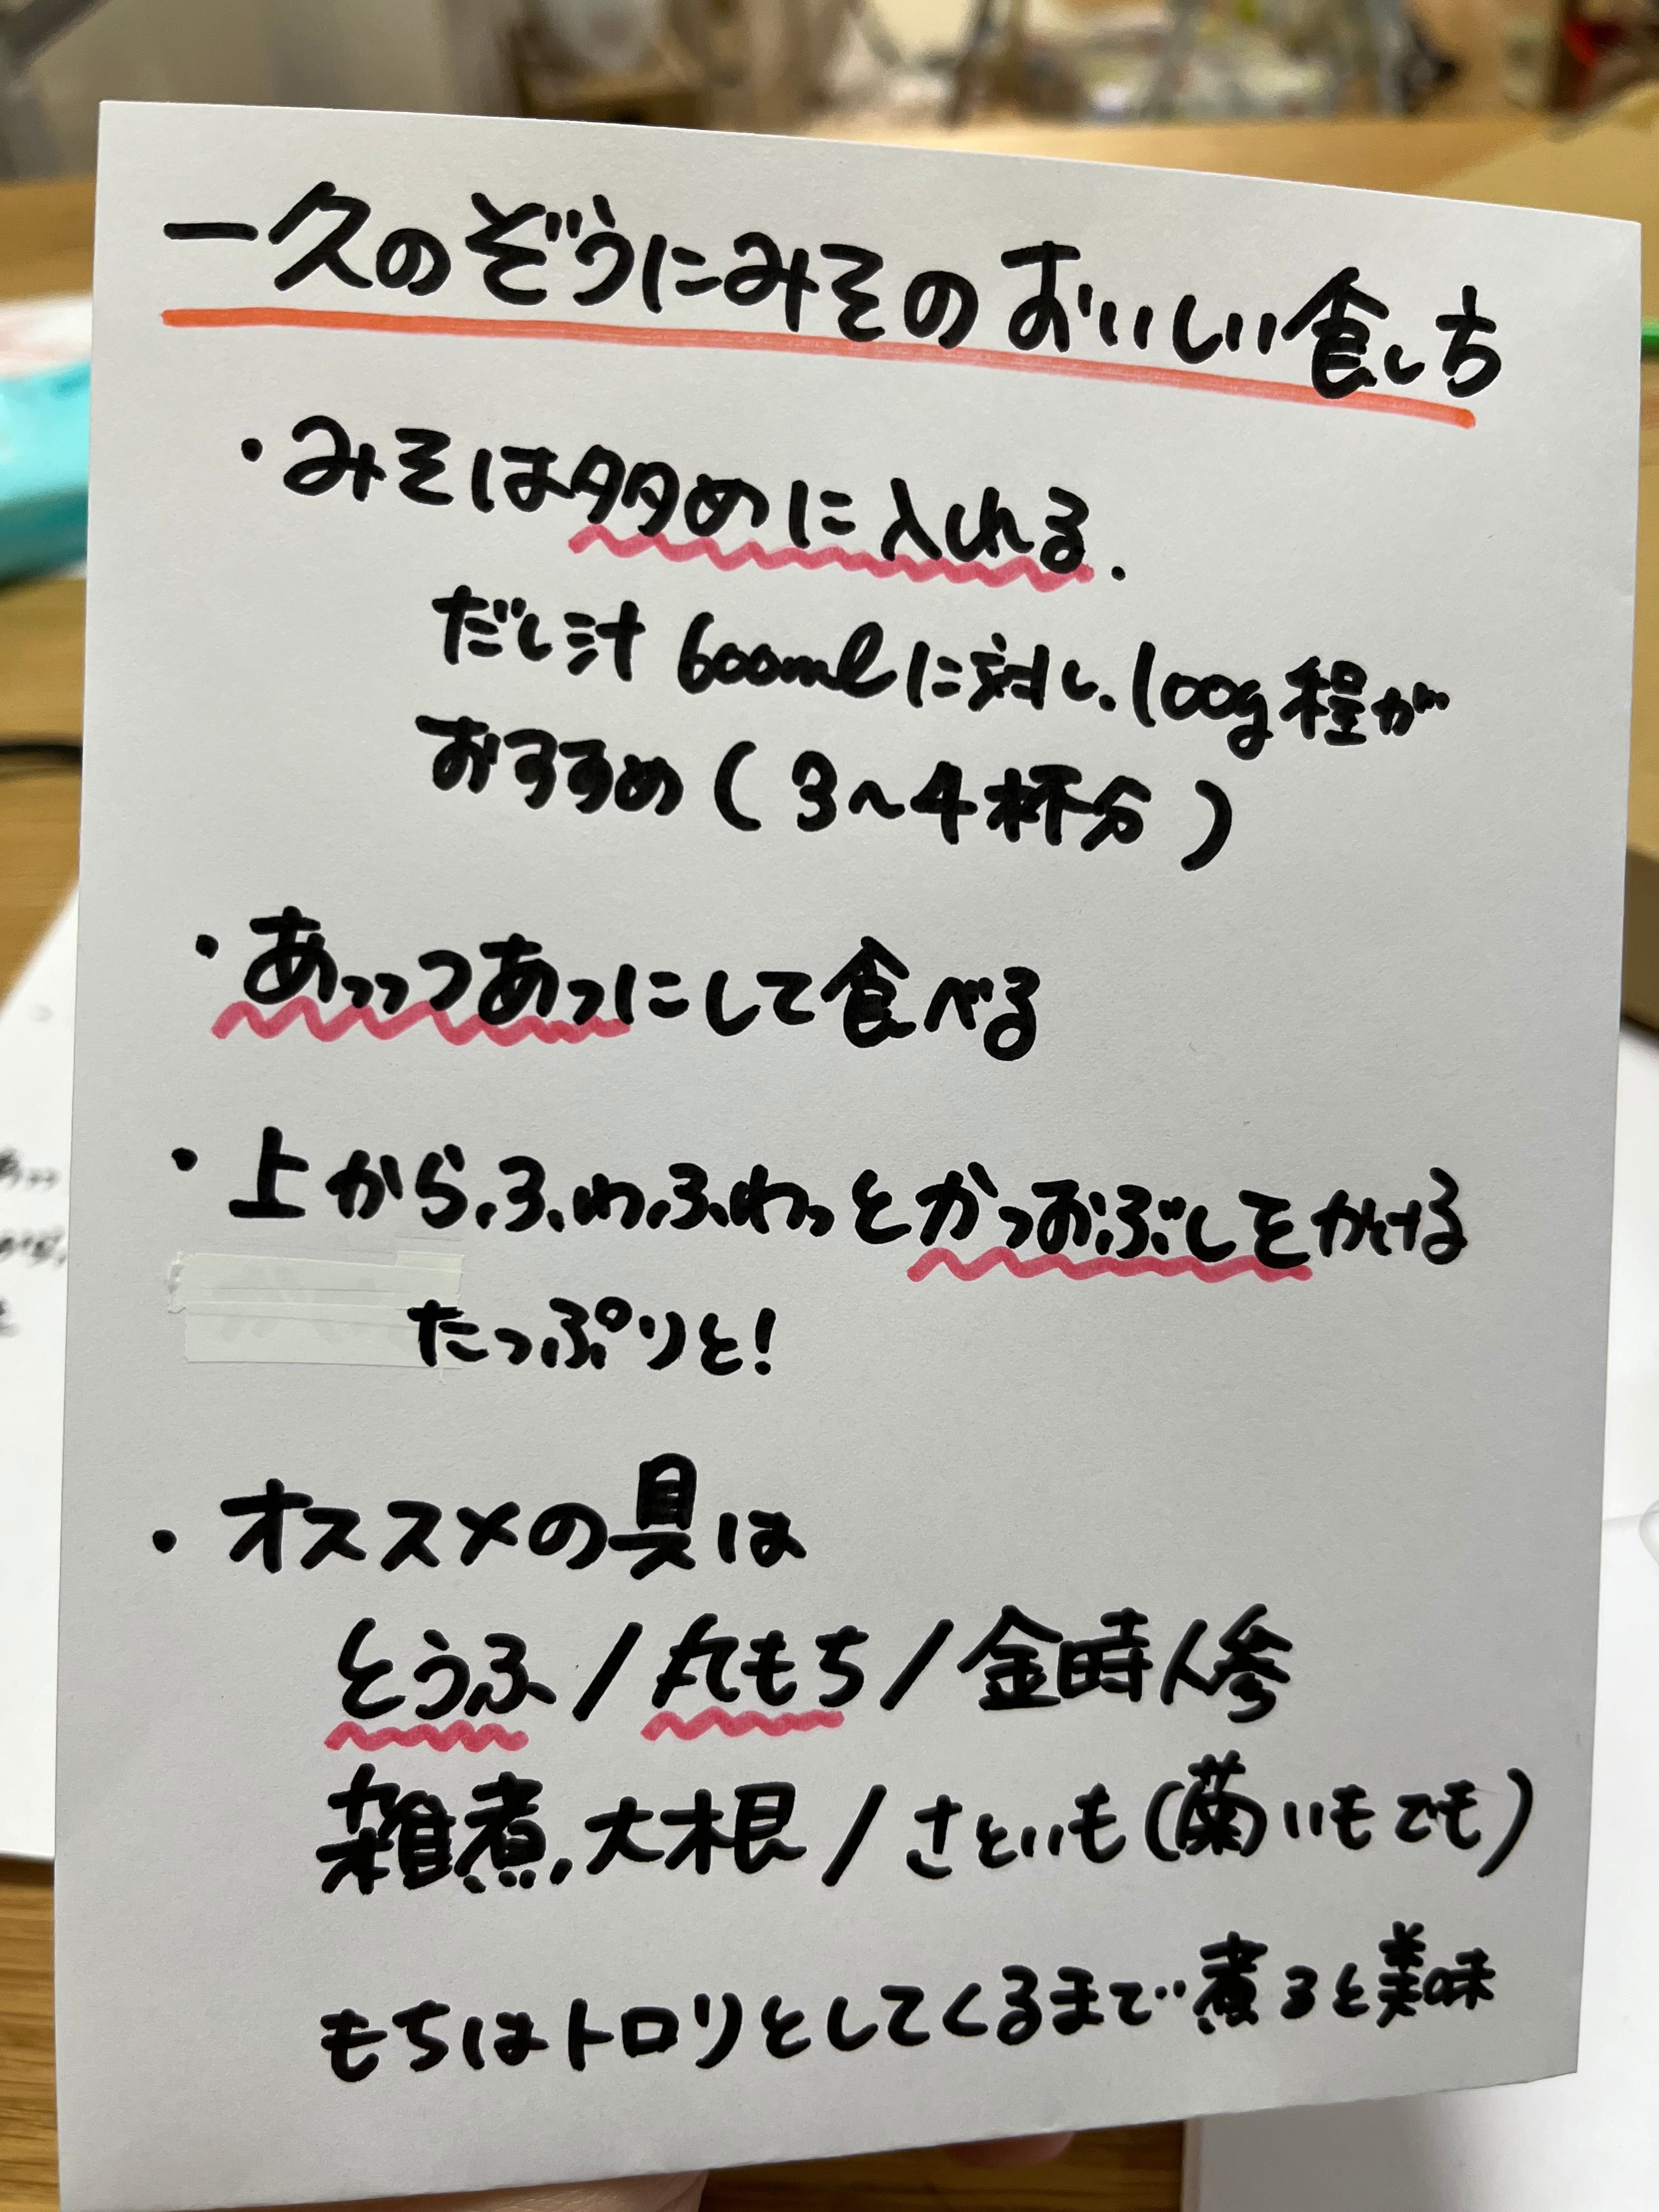 一久のぞうにみそのおいしい食し方
・みそは多めに入れる.
だし汁 600mlに対し、100g程が
おすすめ(3~4杯分)
・あっっつあつにして食べる
・上から、ふわふわっとかつおぶしをかける
たっぷりと!
・オススメの具は
とうふ/丸もち/金時人参
雑煮大根/さといも(菊いもでも)
もちはトロリとしてくるまで煮ると美味